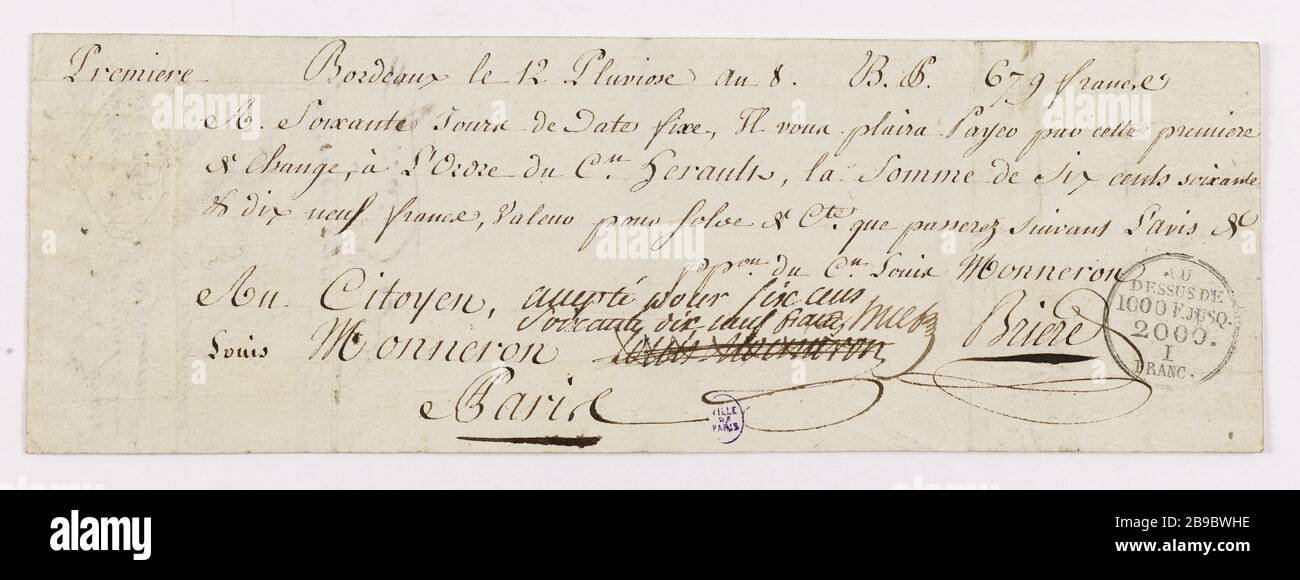 Premiere Bordeaux le 12 Pluviose an 8. B. P. 679 francs
A. Soixante Jours de Date fixe, Il vous plaira Payer par cette premiere
& Change, à L'Ordre du C.en Herault, la Somme de Six cents soixante
& dix neuf francs, Valeur pour Solde & C.te que passerez Suivant L'avis &
du C.en Louis Monneron
Au Citoyen, accepté pour six cens
soixante dix neuf francs
Louis Monneron Louis Monneron Briere
Paris
AU
DESSUS DE
1000 F JUSQ.
2000.
1
FRANC.
VILLE
DE
PARIS
alamy
Image ID: 2B9BWHE
www.alamy.com